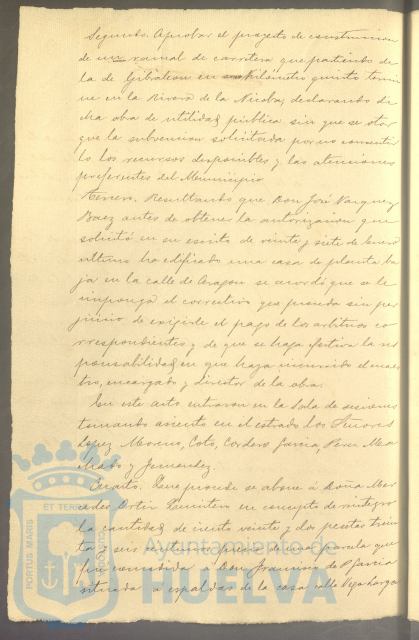 Segundo. Aprobar el proyecto de construccion
de un ramal de carretera que partiendo de
la de Gibraleon en kilómetro quinto termi
ne en la Rivera de la Nicoba, declarando di
cha obra de utilidad pública sin que se otor
gue la subvencion solicitada por no consentir
lo los recursos disponibles y las atenciones
preferentes del Municipio
Tercero. Resultando que Don José Vazquez
Baez antes de obtener la autorizacion que
solicitó en su escrito de veinte y siete de Enero
último ha edificado una casa de planta ba
ja en la calle de Aragon se acordó que se le
imponga el correctivo que proceda sin per
juicio de exigirle el pago de los arbitrios co
rrespondientes y de que se haga efectiva la res
ponsabilidad en que haya incurrido el maes
tro, encargado y director de la obra.
En este acto entraron en la Sala de sesiones
tomando asiento en el estrado los Señores
Lopez Moreno, Coto, Cordero Garcia, Perez Ma
chado y Jemendez.
Cuarto. Que procede se abone á Doña Mer
cedes Ortiz en concepto de reintegro
la cantidad de ciento veinte y dos pesetas trein
ta y seis centimos precio de una parcela que
fué concedida á Don Francisco de P. Garcia
situada á espaldas de la casa calle Vega Larga
PORTUS MARIS
ET TERRAE
CUSTODIA
Ayuntamiento de
HUELVA